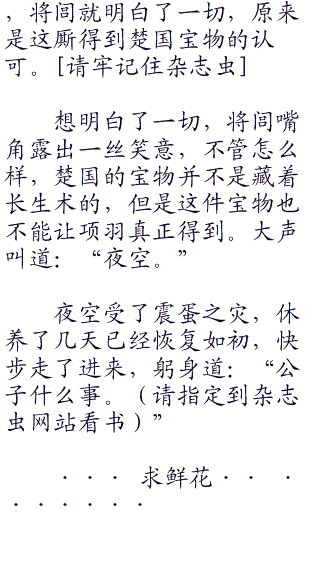 ，将闾就明白了一切，原来
是这厮得到楚国宝物的认
可。[请牢记住杂志虫]
想明白了一切，将闾嘴
角露出一丝笑意，不管怎么
样，楚国的宝物并不是藏着
长生术的，但是这件宝物也
不能让项羽真正得到。大声
叫道：“夜空。”
夜空受了震蛋之灾，休
养了几天已经恢复如初，快
步走了进来，躬身道：“公
子什么事。（请指定到杂志
虫网站看书）”
··· 求鲜花·· ·
······